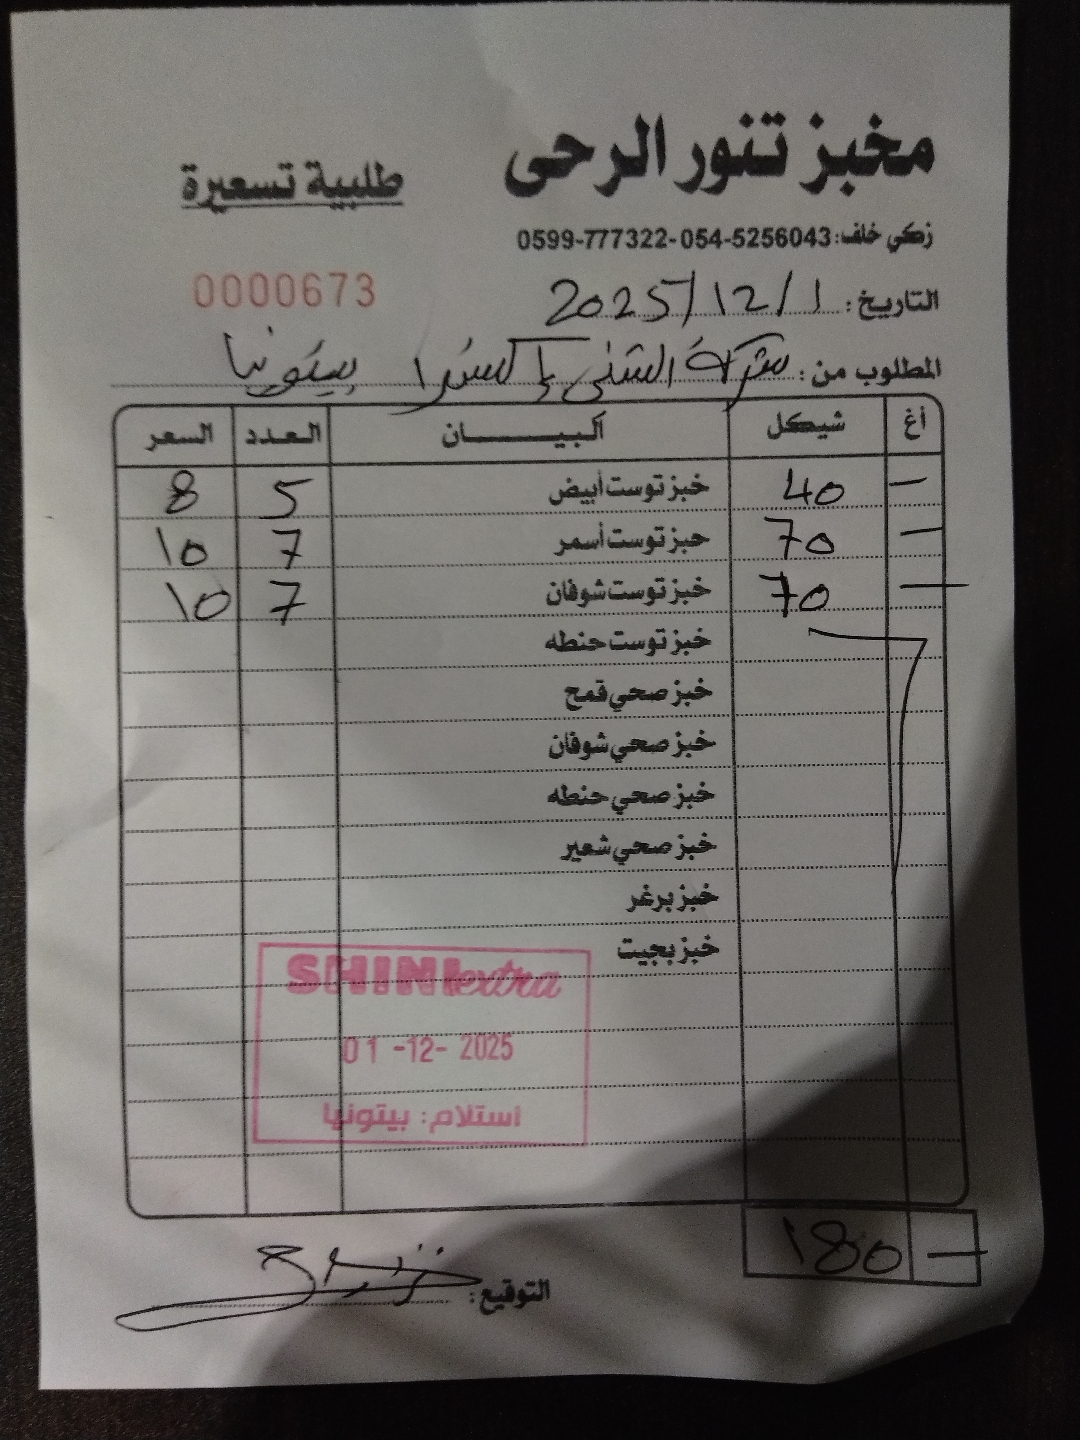 مخبز تنور الرحى
طلبية تسعيرة
زكي خلف: 054-5256043-0599-777322
0000673
التاريخ: 2025/12/1
المطلوب من: شركة الشني إكسترا بيتونيا
أغ شيكل البيــــــان العدد السعر
— 40 خبز توست أبيض 5 8
— 70 خبز توست أسمر 7 10
— 70 خبز توست شوفان 7 10
خبز توست حنطه
خبز صحي قمح
خبز صحي شوفان
خبز صحي حنطه
خبز صحي شعير
خبز برغر
خبز بجيت
SHINI extra
01 -12- 2025
استلام: بيتونيا
— 180
التوقيع: